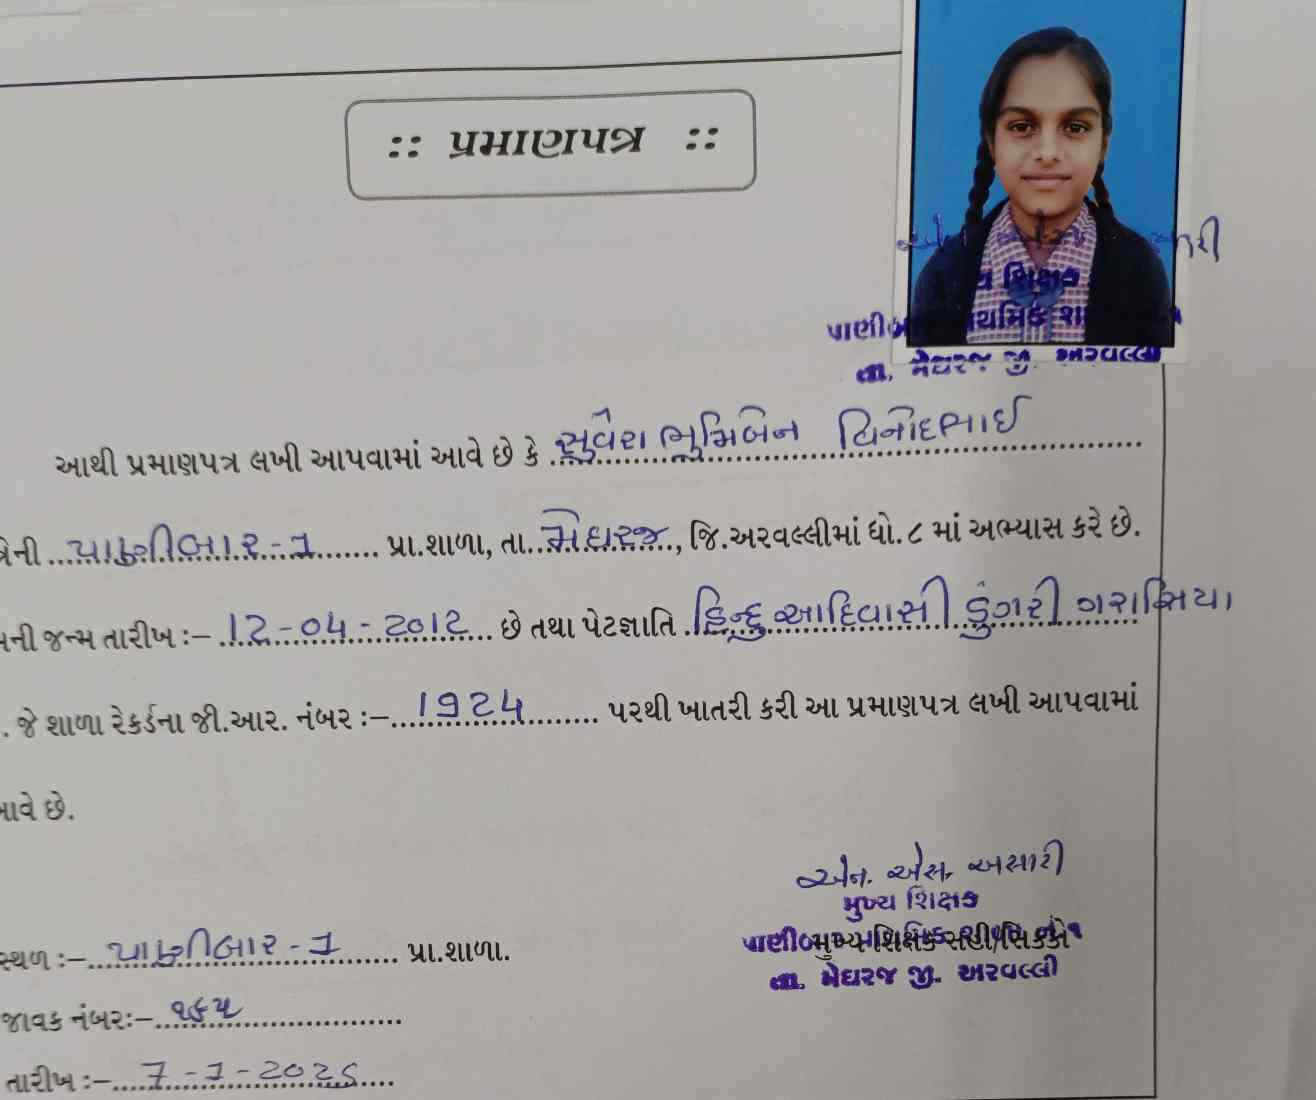 :: પ્રમાણપત્ર ::
પાણીબાર પ્રાથમિક શા
તા. મેઘરજ જી. અરવલ્લી
આથી પ્રમાણપત્ર લખી આપવામાં આવે છે કે સુવેરા ભૂમિબેન વિનોદભાઈ
ત્રેની પાણીબાર-1 પ્રા.શાળા, તા. મેઘરજ, જિ.અરવલ્લીમાં ધો.૮ માં અભ્યાસ કરે છે.
મની જન્મ તારીખ :- 12-04-2012 છે તથા પેટજ્ઞાતિ હિન્દુ આદિવાસી ડુંગરી ગરાસિયા
. જે શાળા રેકર્ડના જી.આર. નંબર :- 1924 પરથી ખાતરી કરી આ પ્રમાણપત્ર લખી આપવામાં
આવે છે.
એન. એસ. અસારી
મુખ્ય શિક્ષક
મુખ્ય શિક્ષક સહી/સિક્કો
તા. મેઘરજ જી. અરવલ્લી
સ્થળ :- પાણીબાર-1 પ્રા.શાળા.
જાવક નંબર:- ૧૬૫
તારીખ :- 7-1-202